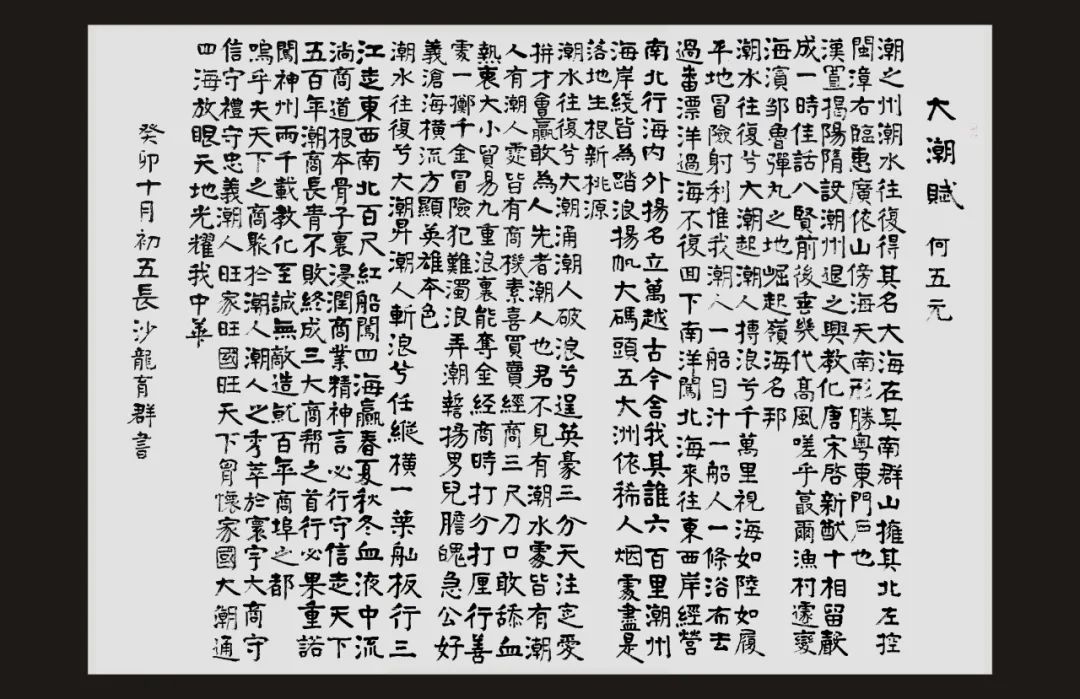 大潮賦 何五元
潮之州潮水往復得其名大海在其南群山擁其北左控
閩漳右臨惠廣依山傍海天南形勝粵東門戶也
漢置揭陽隋設潮州退之興教化唐宋啓新猷十相留聲
成一時佳話八賢前後垂幾代高風嗟乎蕞爾漁村遽變
海濱鄒魯彈丸之地崛起嶺海名邦
潮水往復兮大潮起潮人摶浪兮千萬里視海如陸如履
平地冒險射利惟我潮人一船目汁一船人一條浴布去
過番漂洋過海不復回下南洋闖北海來往東西岸經營
南北行海内外揚名立萬越古今舍我其誰六百里潮州
海岸綫皆為踏浪揚帆大碼頭五大洲依稀人烟處盡是
落地生根新桃源
潮水往復兮大潮涌潮人破浪兮逞英豪三分天注定愛
拼才會贏敢為人先者潮人也君不見有潮水處皆有潮
人有潮人處皆有商機素喜買賣經商三尺刀口敢舔血
熱衷大小貿易九重浪裏能奪金经商時打分打厘行善
處一擲千金冒險犯難濁浪弄潮誓揚男兒膽魄急公好
義滄海横流方顯英雄本色
潮水往復兮大潮昇潮人斬浪兮任縱横一葉舢板行三
江走東西南北百尺紅船闖四海贏春夏秋冬血液中流
淌商道根本骨子裏浸潤商業精神言必行守信走天下
五百年潮商長青不敗終成三大商幫之首行必果重諾
闖神州兩千載教化至誠無敵造就百年商埠之都
嗚乎夫天下之商聚於潮人潮人之秀萃於寰宇大商守
信守禮守忠義潮人旺家旺國旺天下胷懷家國大潮通
四海放眼天地光耀我中華
癸卯十月初五長沙龍育群書